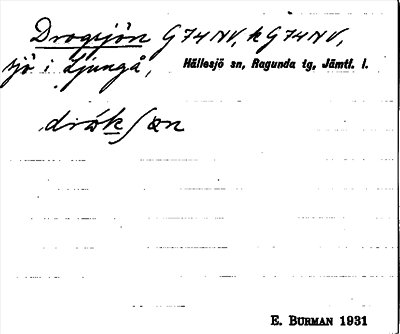 Drogsjön G 74 NV, k G 74 NV,
sjö i Ljungå, Hällesjö sn, Ragunda tg, Jämtl. l.
E. BURMAN 1931